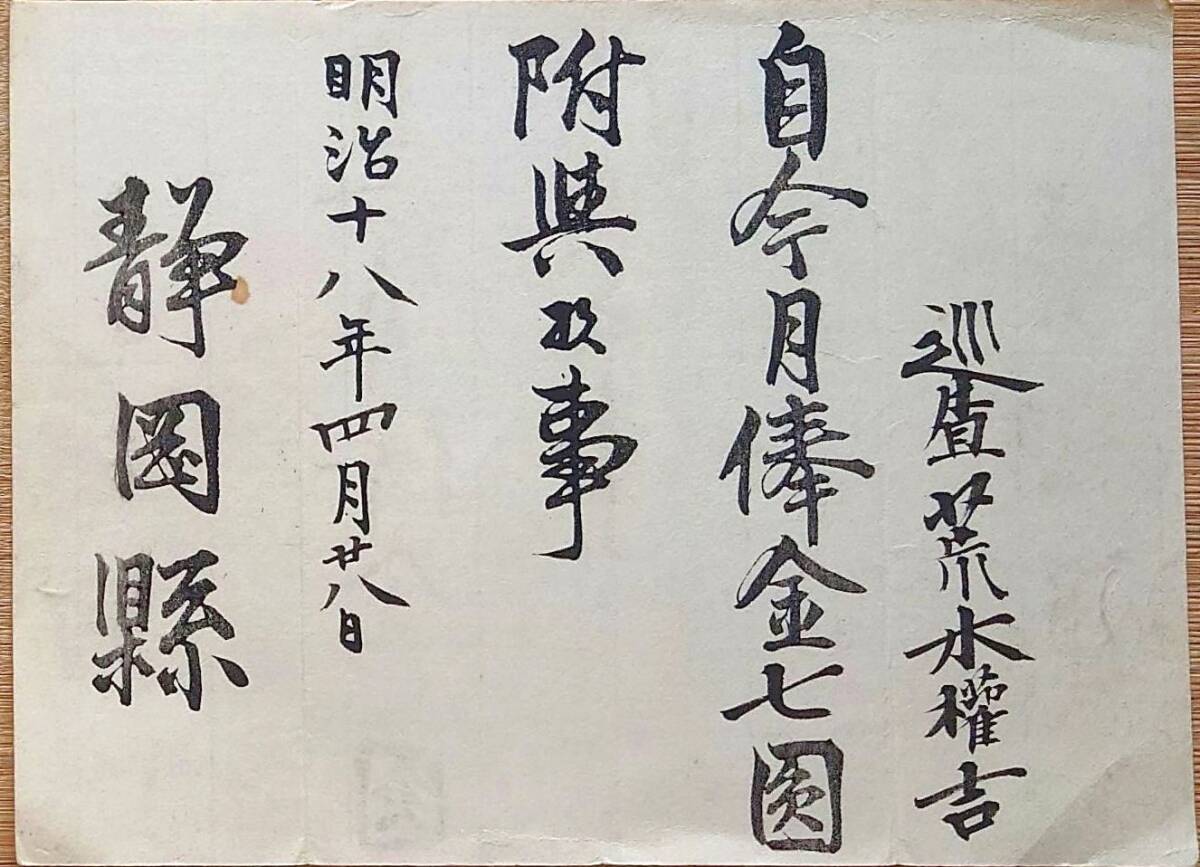 巡査荒水權吉
自今月俸金七圓
附與候事
明治十八年四月廿八日
靜岡縣